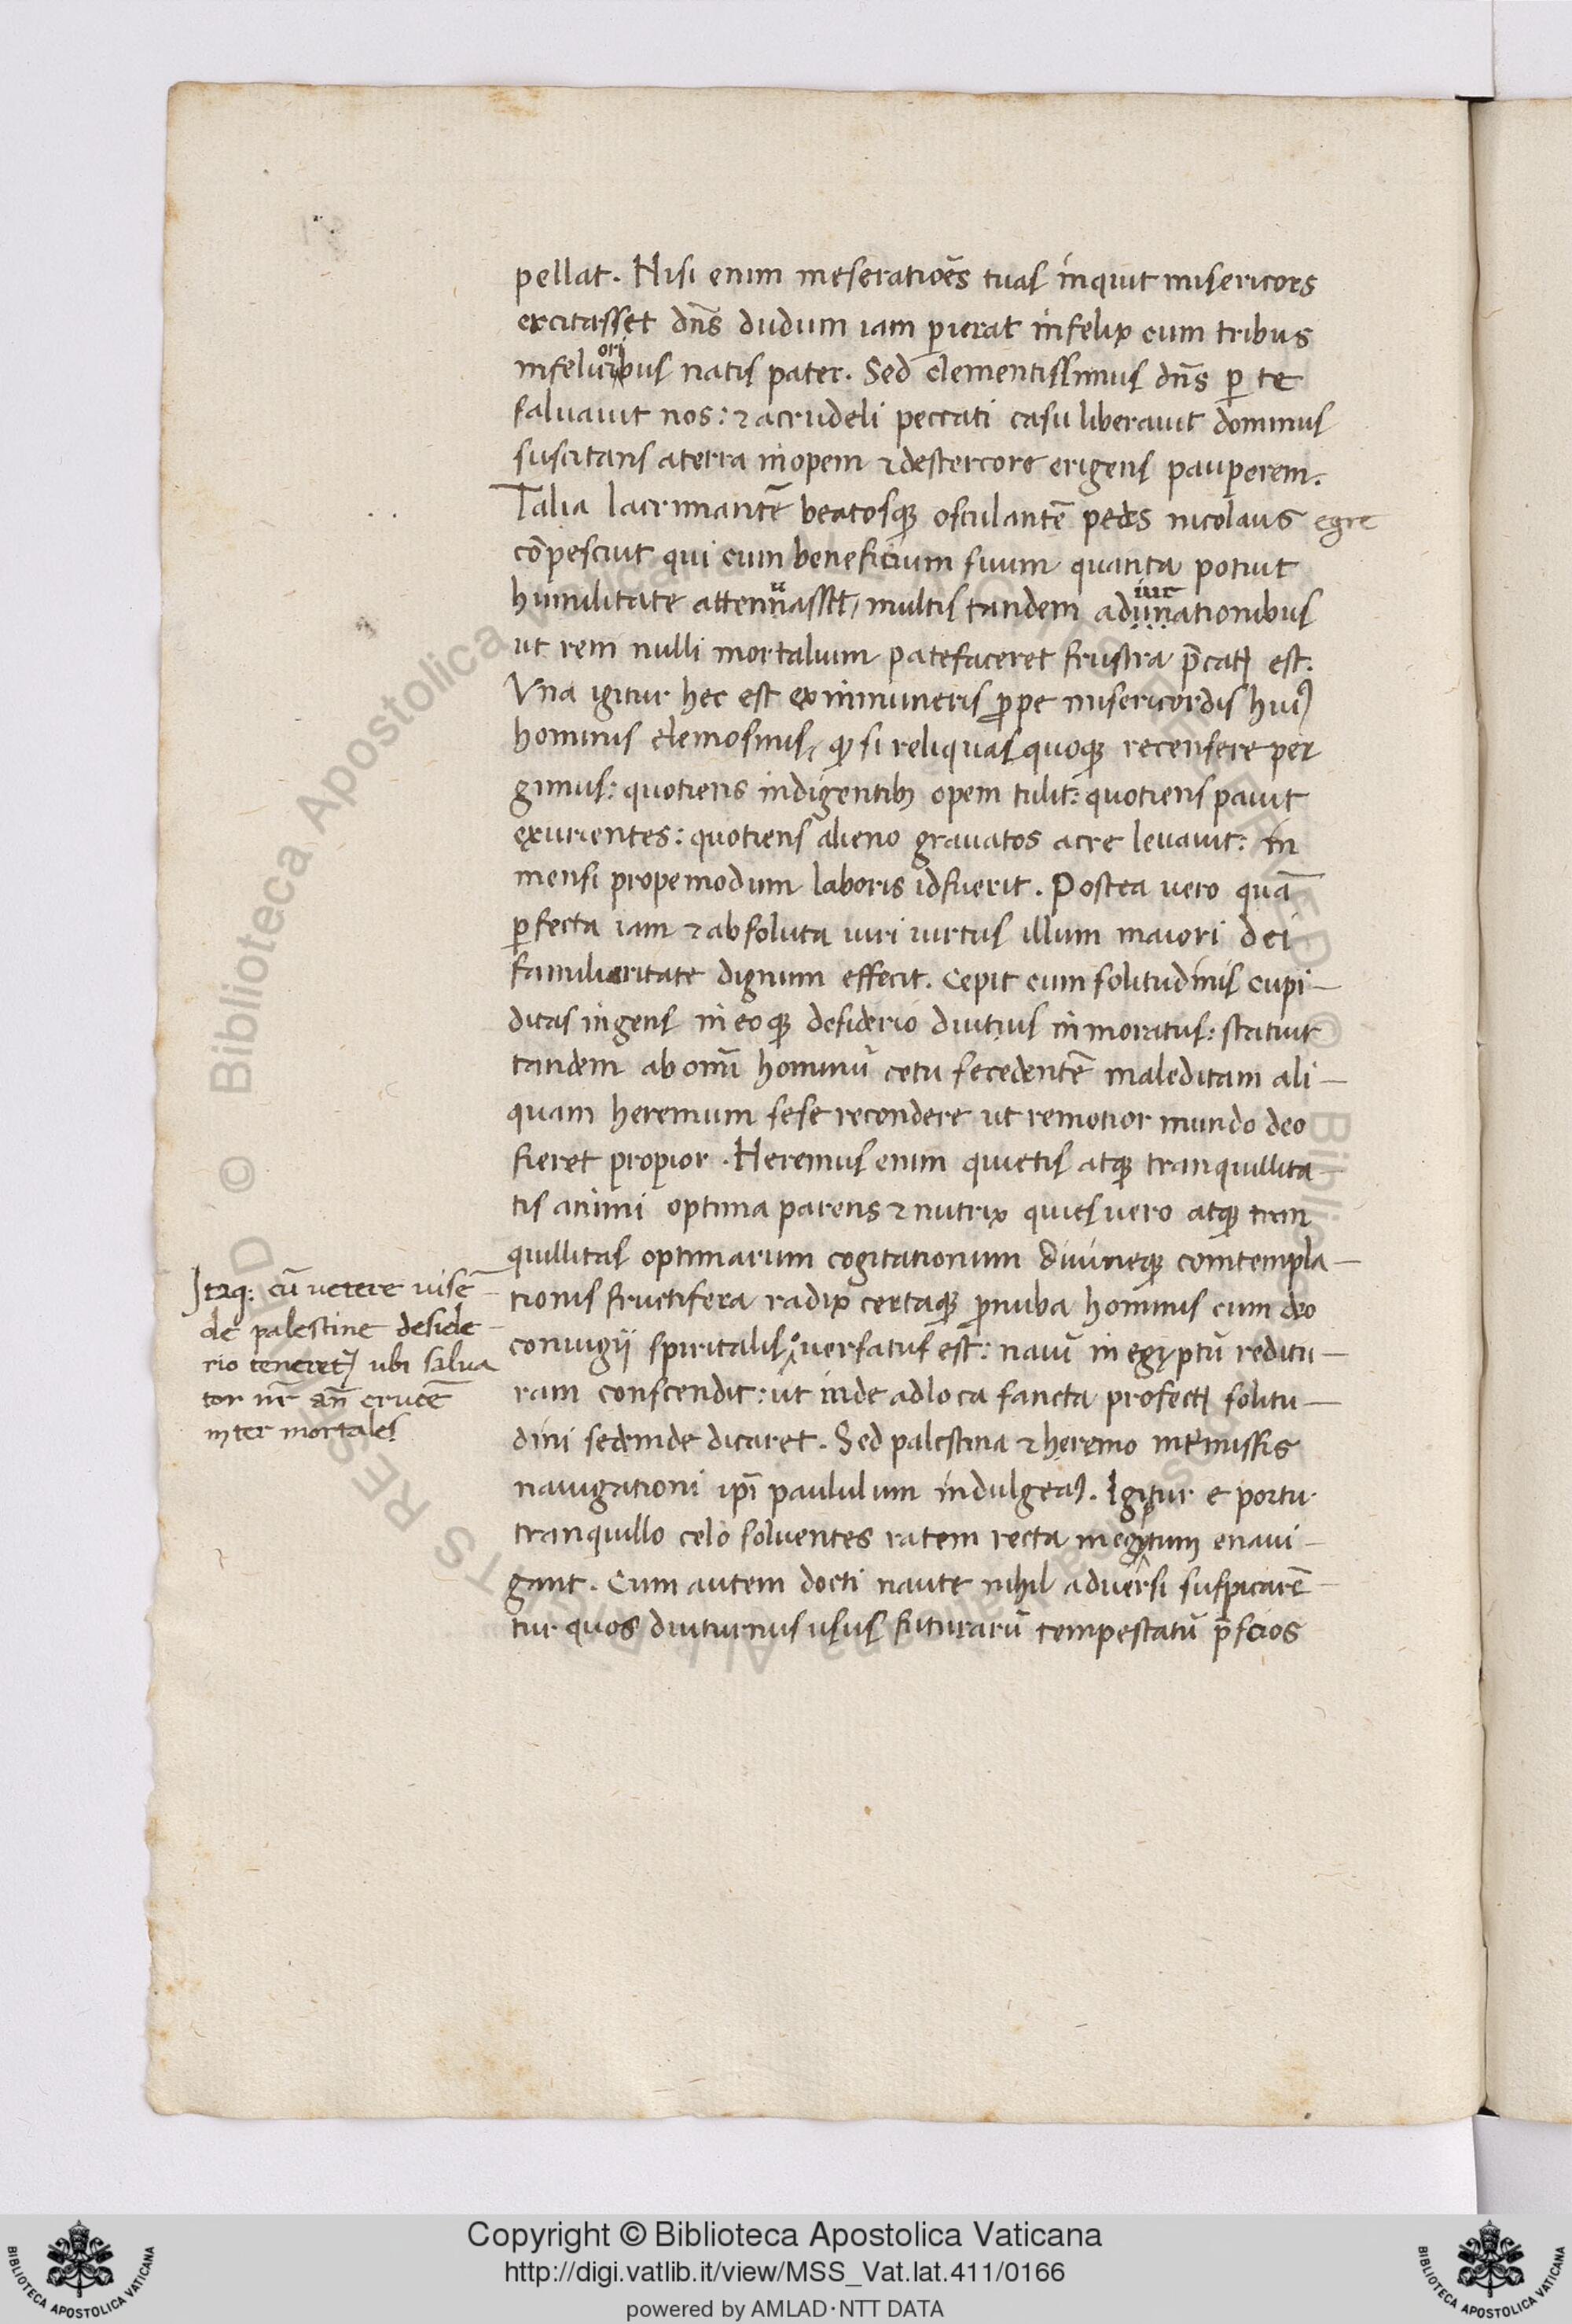 pellat. Nisi enim meseratiões tuas inquit misericors
excitasset dñs dudum iam p̱ierat infelix cum tribus
infelicioribus natis pater. Sed clementissimus dñs p̱ te
saluauit nos: ⁊ acrudeli peccati casu liberauit dominus
suscitans aterra inopem ⁊destercore erigens paup̱erem.
Talia lacrimantē beatosqꝫ osculantē pedes nicolaus egre
cōpesciut qui cum beneficium suum quanta potiut
humilitate attenuasset, multis tandem adiurationibus
ut rem nulli mortalium patefaceret frustra p̄catꝰ est.
Vna igitur hec est ex inmuneris ꝓpe misericordis huiꝰ
hominis elemosinis, qꝫ si reliquas quoqꝫ recensere per
gimus: quotiens indigentibꝫ opem tulit: quotiens pauit
exurientes: quotiens alieno grauatos aere leuauit: in
mensi propemodum laboris idfuerit. Postea uero quā
p̱fecta iam ⁊absoluta uiri uirtus illum maiori dei
familiaritate dignum effecit. Cepit eum solitudinis cupi-
ditas ingens in eoqꝫ desiderio diutius inmoratus: statuit
tandem ab omī hominū cetu secedentē maleditam ali-
quam heremum sese recondere ut remotior mundo deo
fieret propior. Heremus enim quietis atqꝫ tranquillita-
tis animi optima parens ⁊ nutrix quies uero atqꝫ tran
quillitas optimarum cogitationum diuineqꝫ comtempla-
tionis fructifera radix certaqꝫ ꝓnuba hominis cum deo
coniugij spiritalis, uersatus est: nauī in egyptū reditu-
ram conscendit: ut inde adloca sancta profectꝰ solitu-
dini sedeinde dicaret. Sed palestina ⁊ heremo intermissis
nauigationi ipī paululum indulgeaꝰ. Igitur e portu
tranquillo celo soluentes ratem recta inegyptum enaui-
gant. Cum autem docti naute nihil aduersi suspicarē-
tur quos diuturnus usus futurarū tempestatū p̄scios
Itaqꝫ: cū uetere uisē-
de palestine deside-
rio teneretꝰ ubi salua
tor nr̄ an̄ crucē
inter mortales
Copyright © Biblioteca Apostolica Vaticana
http://digi.vatlib.it/view/MSS_Vat.lat.411/0166
powered by AMLAD·NTT DATA